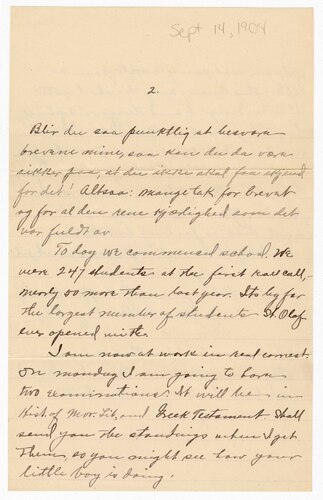 Sept 14, 1904
2.
Blir du saa punktlig at besvare
brevene mine, saa kan du da være
sikker paa, at du ikke skal faa skjend
for det! Altsaa: mange tak for brevet
og for al den rene kjærlighed som det
var fuldt av.
Today we commenced school. We
were 247 students at the first roll call,
nearly 50 more than last year. Its by far
the largest number of students St. Olaf
ever opened with.
I am now at work in real earnest.
On monday I am going to have
two examinations. It will be in
Hist. of Nor. Lit, and Greek Testament. Shall
send you the standings when I get
them, so you might see how your
little boy is doing.